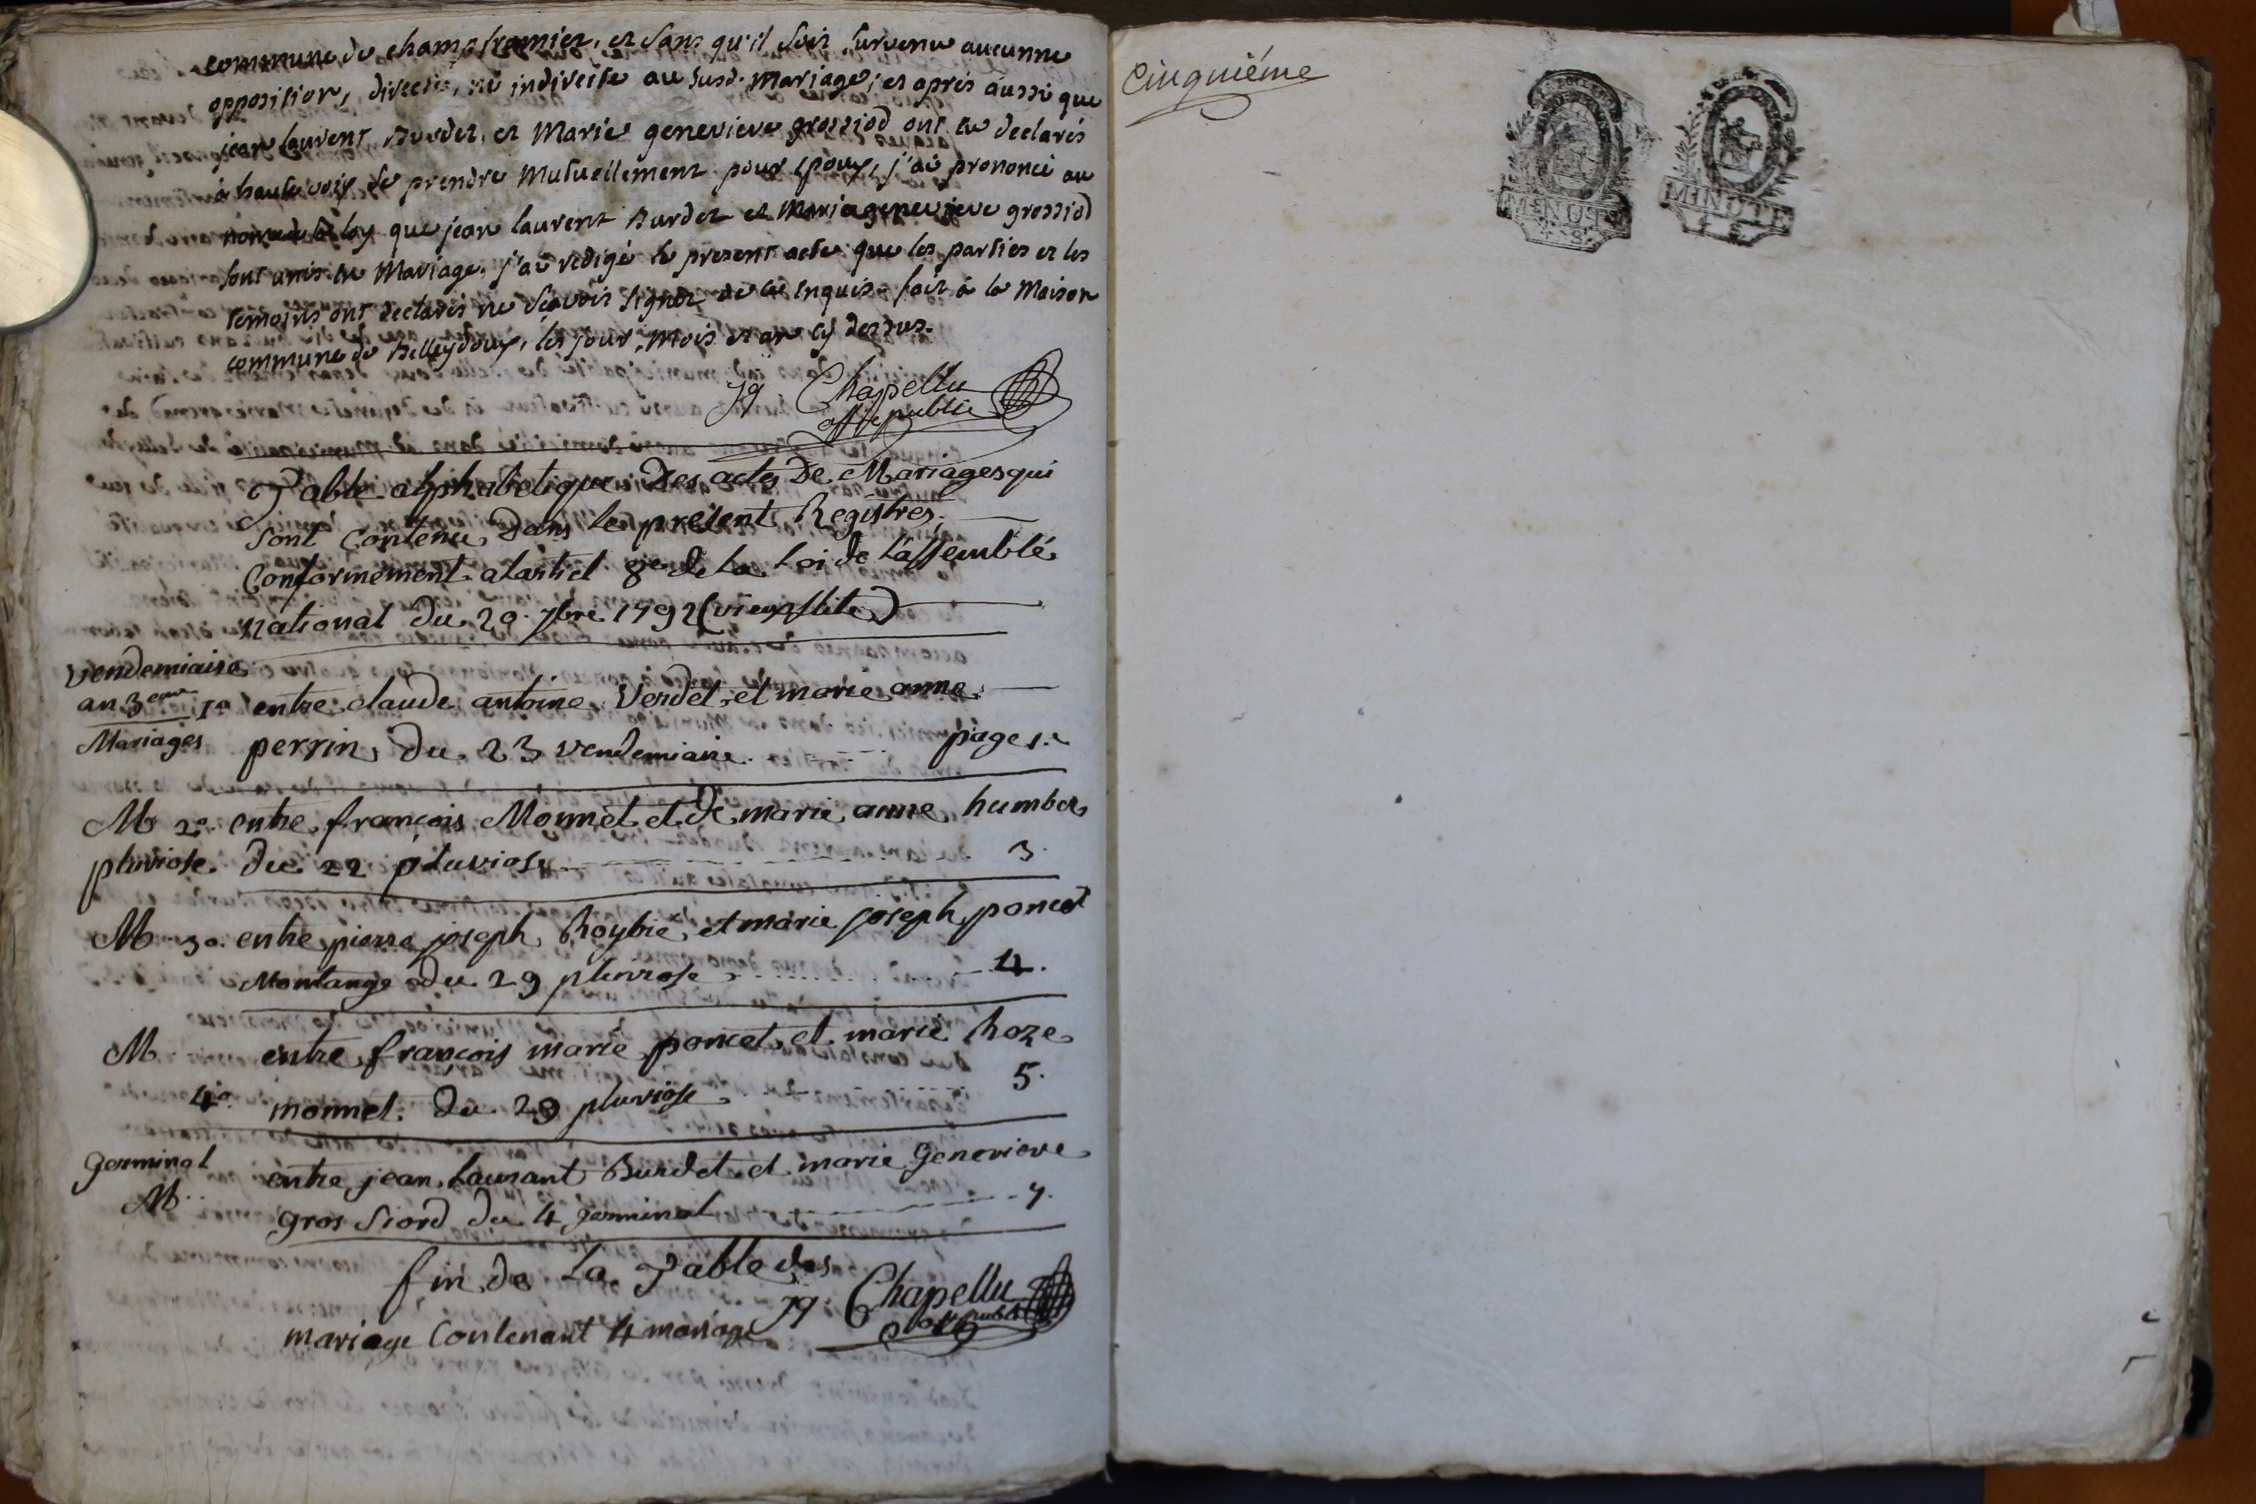 commune de champfromier, et sans qu'il soit survenu aucunne
opposition, directe, ni indirecte au susd. mariage; et après aussi que
jean laurent Burdet, et Marie genevieve grossiod ont eu declarés
à haute voix se prendre Mutuellement pour Epoux, j'ai prononcé au
nom de la loy que jean laurent Burdet et Marie genevieve grossiod
sont unis en Mariage. j'ai redigé le present acte que les parties et les
temoins ont declarés ne sçavoir signer de ce enquis. fait à la Maison
commune de Belleydoux, les jour, mois et an cy dessus.
J g Chapellu
off. public
Table alphabetique Des actes De Mariages qui
sont Contenu Dans le present Registres,
Conformement a lartiel 8e de la Loi de l'assemblé
national Du 20. 7bre 1792 (vieux stile)
vendemiaire
an 3eme 1o entre claude antoine Verdet, et marie anne
Mariages perrin Du 23 vendemiaire. page 1.e
M 2o. entre françois Monnet et De marie anne humbert
pluviose Du 22 pluviose 3.
M 3o. entre pierre joseph Roybie et marie joseph poncet
Montange Du 29 pluviose 4.
M entre françois marie poncet et marie Roze
4o. monnet. Du 29 pluviose 5.
Germinal entre jean Laurant Burdet et marie Genevieve
M gros siord du 4 germinal 7.
fin de La Table des
mariage Contenant 4 mariage J g Chapellu
off. public
Cinquiéme
MINUTE
MINUTE